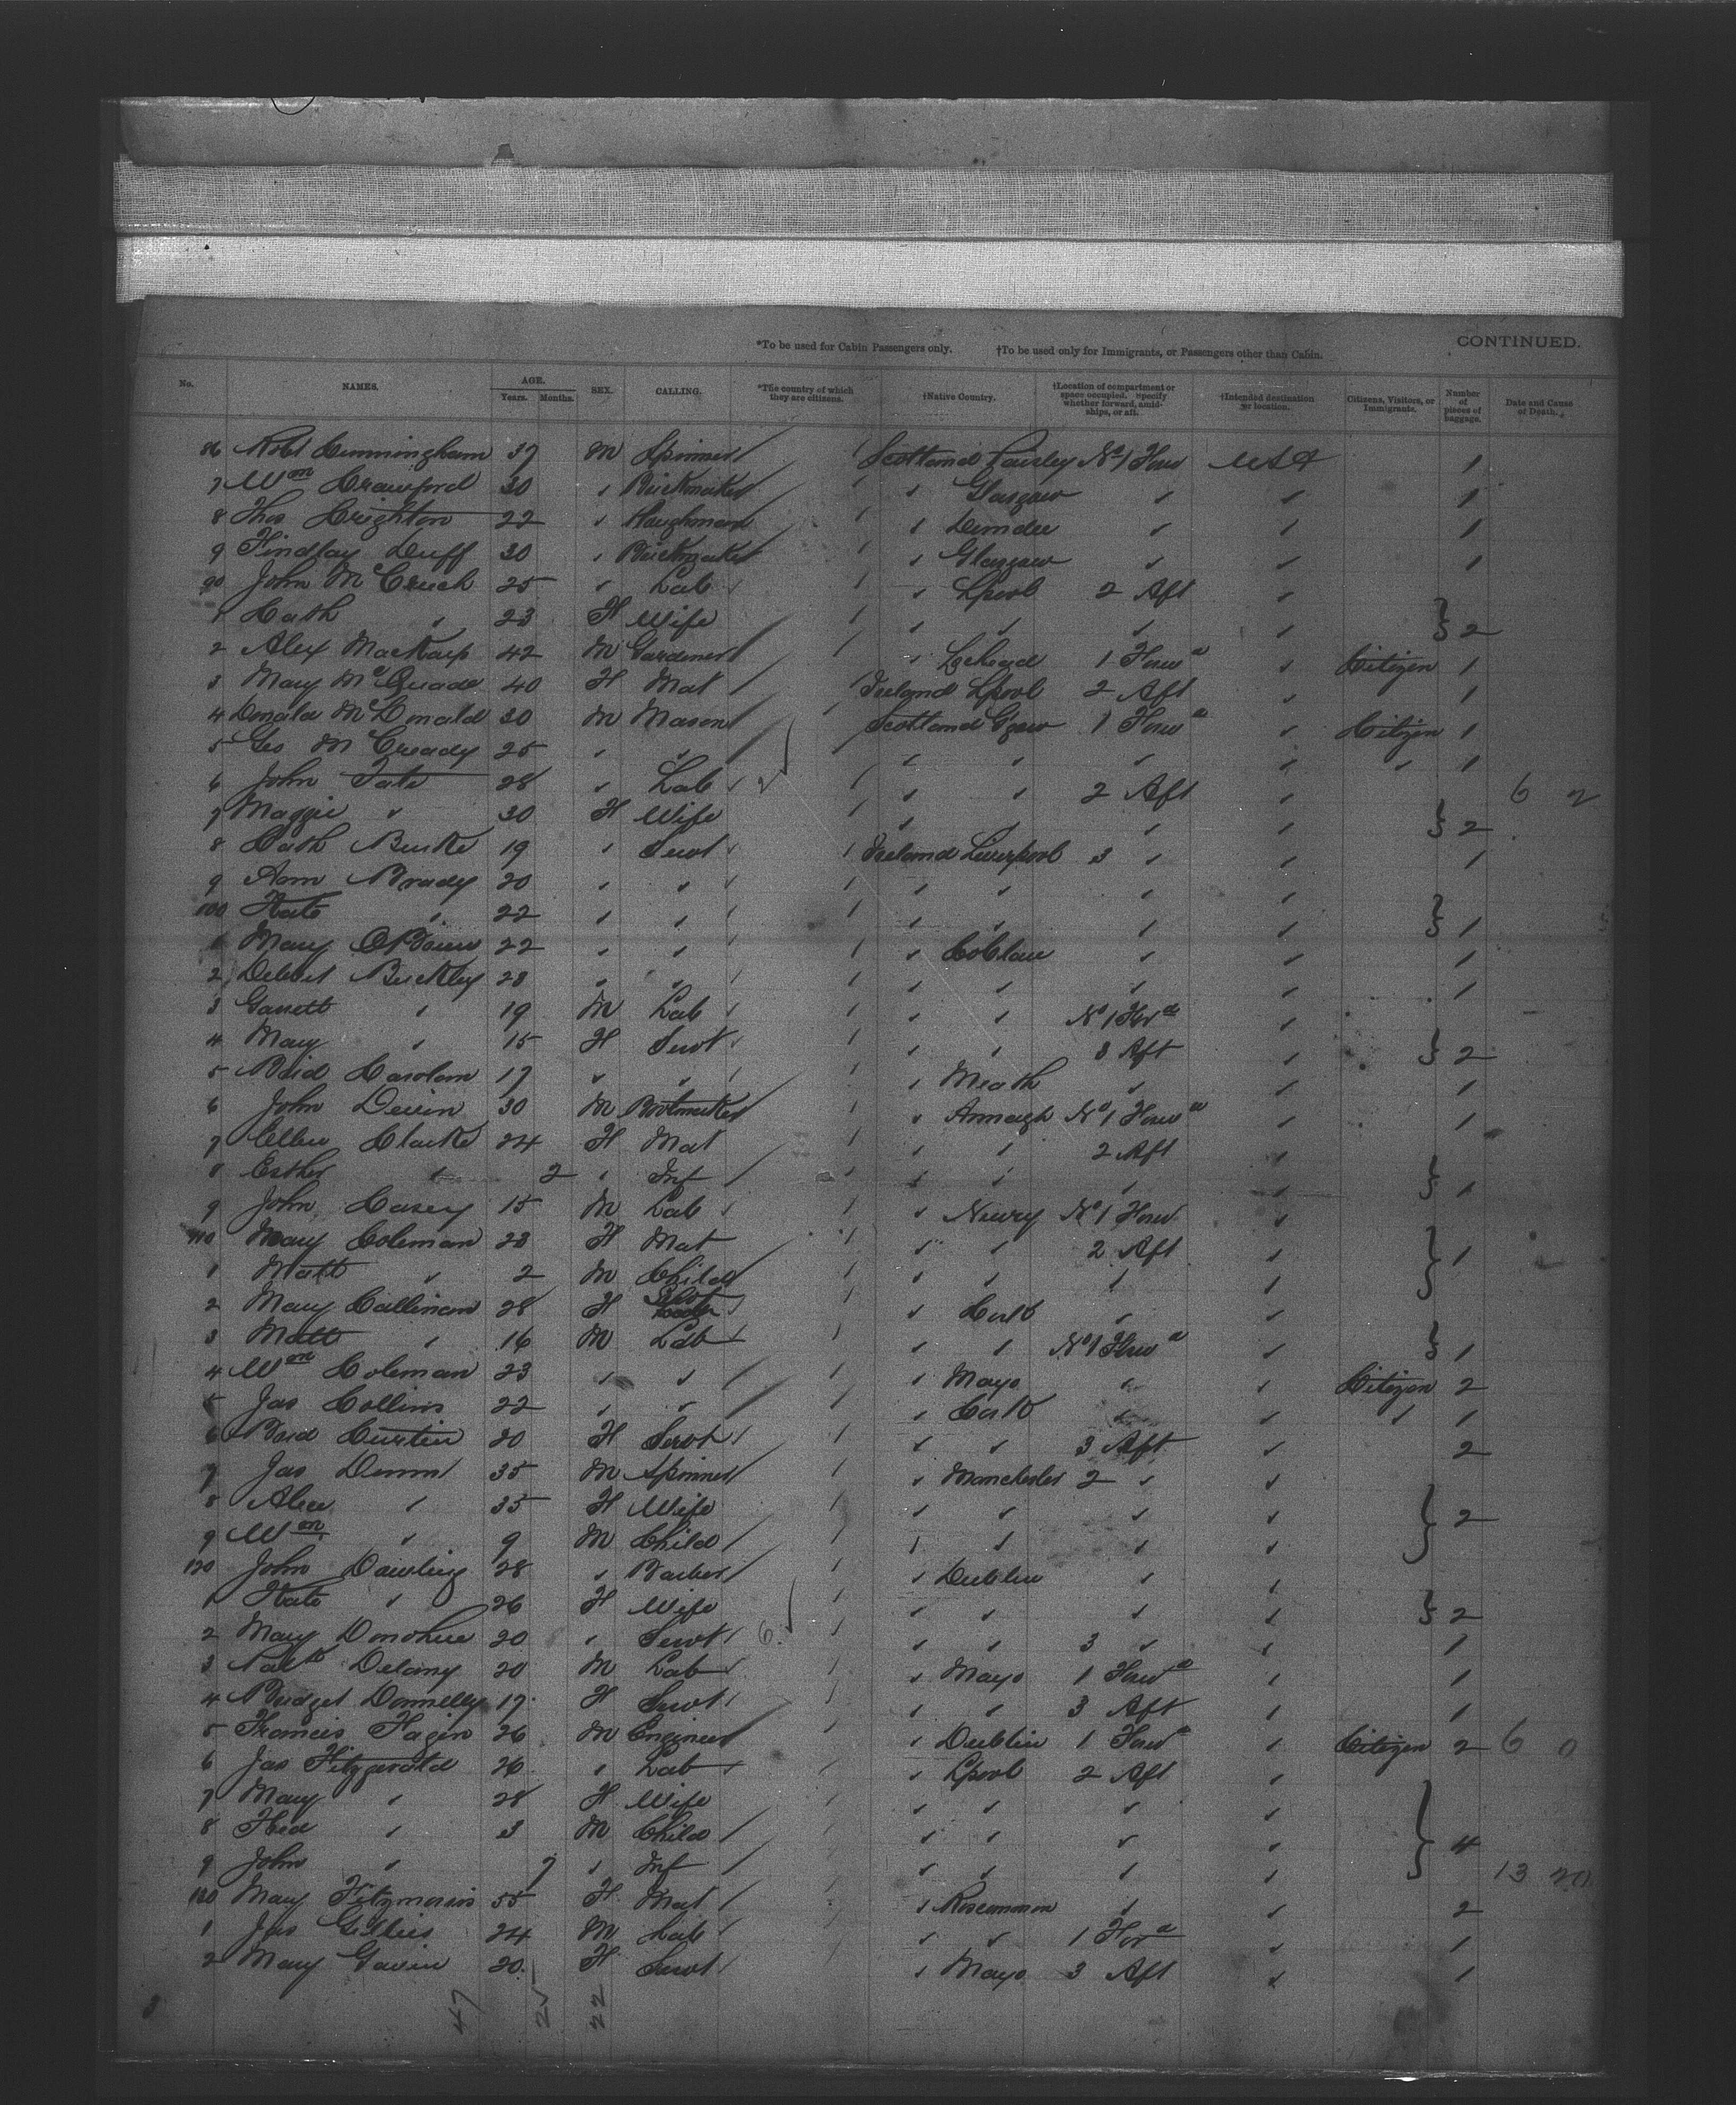 CONTINUED.
*To be used for Cabin Passengers only. †To be used only for Immigrants, or Passengers other than Cabin.
No. NAMES. AGE. Years. Months. SEX. CALLING. *The country of which they are citizens. †Native Country. †Location of compartment or space occupied. Specify whether forward, amidships, or aft. †Intended destination or location. Citizens, Visitors, or Immigrants. Number of pieces of baggage. Date and Cause of Death.
86 Robt Cunningham 37 M Spinner Scotland Paisley No 1 Forwd USA 1
7 Wm Crawford 30 " Brickmaker " Glasgow " " 1
8 Thos Crighton 22 " Ploughman " Dundee " " 1
9 Findlay Duff 30 " Brickmaker " Glasgow " " 1
90 John Mc 25 " Lab " Lpool 2 Aft "
1 Cath " 23 F Wife " " " " } 2
2 Alex 42 M Gardener " 1 Forwd " Citizen 1
3 Mary McQuade 40 F Mat Ireland Lpool 2 Aft " 1
4 Donald McDonald 30 M Mason Scotland Ggow 1 Forwd " Citizen 1
5 Geo McCready 25 " " " " " " " 1
6 John Tate 28 " Lab " " 2 Aft " 6 2
7 Maggie " 30 F Wife " " " " } 2
8 Cath Burke 19 " Servt Ireland Liverpool 3 " " 1
9 Ann Brady 20 " " " " " "
100 Kate " 22 " " " " " " } 1
1 Mary 22 " " " Co Clare " " 1
2 Buckley 28 " " " " " " 1
3 Garrett " 19 M Lab " " No 1 Forwd "
4 Mary " 15 F Servt " " 3 Aft " } 2
5 Brid Carolan 17 " " " Meath " " 1
6 John Devin 30 M Bootmaker " Armagh No 1 Forwd " 1
7 Ellen Clarke 24 F Mat " " 2 Aft "
8 Esther " 2 " Inf " " " " } 1
9 John Casey 15 M Lab " Newry No 1 Forwd "
110 Mary Coleman 23 F Mat " " 2 Aft " } 1
1 Matt " 2 M Child " " " "
2 Mary Callinan 28 F Servt " Cork " "
3 Matt " 16 M Lab " " No 1 Forwd " } 1
4 Wm Coleman 23 " " " Mayo " " Citizen 2
5 Jas Collins 22 " " " Cork " " " 1
6 Brid Curtin 20 F Servt " " 3 Aft " 2
7 Jas Dunn 35 M Spinner " Manchester 2 " "
8 Alice " 35 F Wife " " " " } 2
9 Wm " 9 M Child " " " "
120 John Dowling 28 " Barber " Dublin " "
1 Kate " 26 F Wife " " " " } 2
2 Mary Donohue 20 " Servt 6 " " 3 " " 1
3 Delany 20 M Lab " Mayo 1 Forwd " 1
4 Bridget Donnelly 17 F Servt " " 3 Aft " 1
5 Francis Fagin 26 M Engineer " Dublin 1 Forwd " Citizen 2 6 0
6 Jas Fitzgerald 26 " Lab " Lpool 2 Aft "
7 Mary " 28 F Wife " " " "
8 " 3 M Child " " " " } 4
9 John " 7 " Inf " " " " 13 20
130 Mary Fitzmorris 55 F Mat " Roscommon " " 2
1 Jas Gillies 24 M Lab " " 1 Forwd " 1
2 Mary Gavin 20 F Servt " Mayo 3 Aft " 1
47 25 22